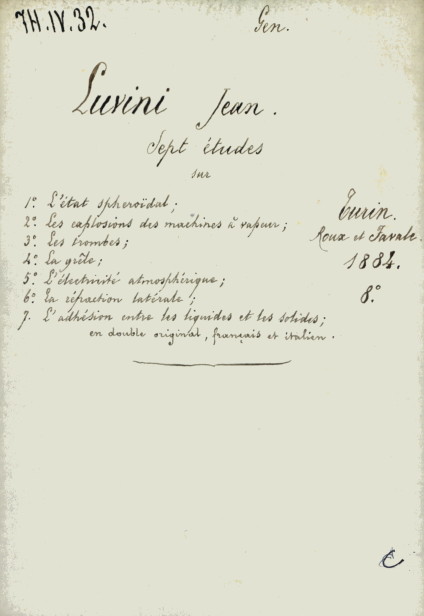 7H.IV.32.
Gen.
Luvini Jean.
Sept études
sur
1º. L'état spheroïdal;
2º. Les explosions des machines à vapeur;
3º. Les trombes;
4º. La grêle;
5º. L'électricité atmosphérique;
6º. La réfraction latérale;
7. L'adhésion entre les liquides et les solides;
en double original, français et italien.
Turin.
Roux et Favale.
1884.
8º
C